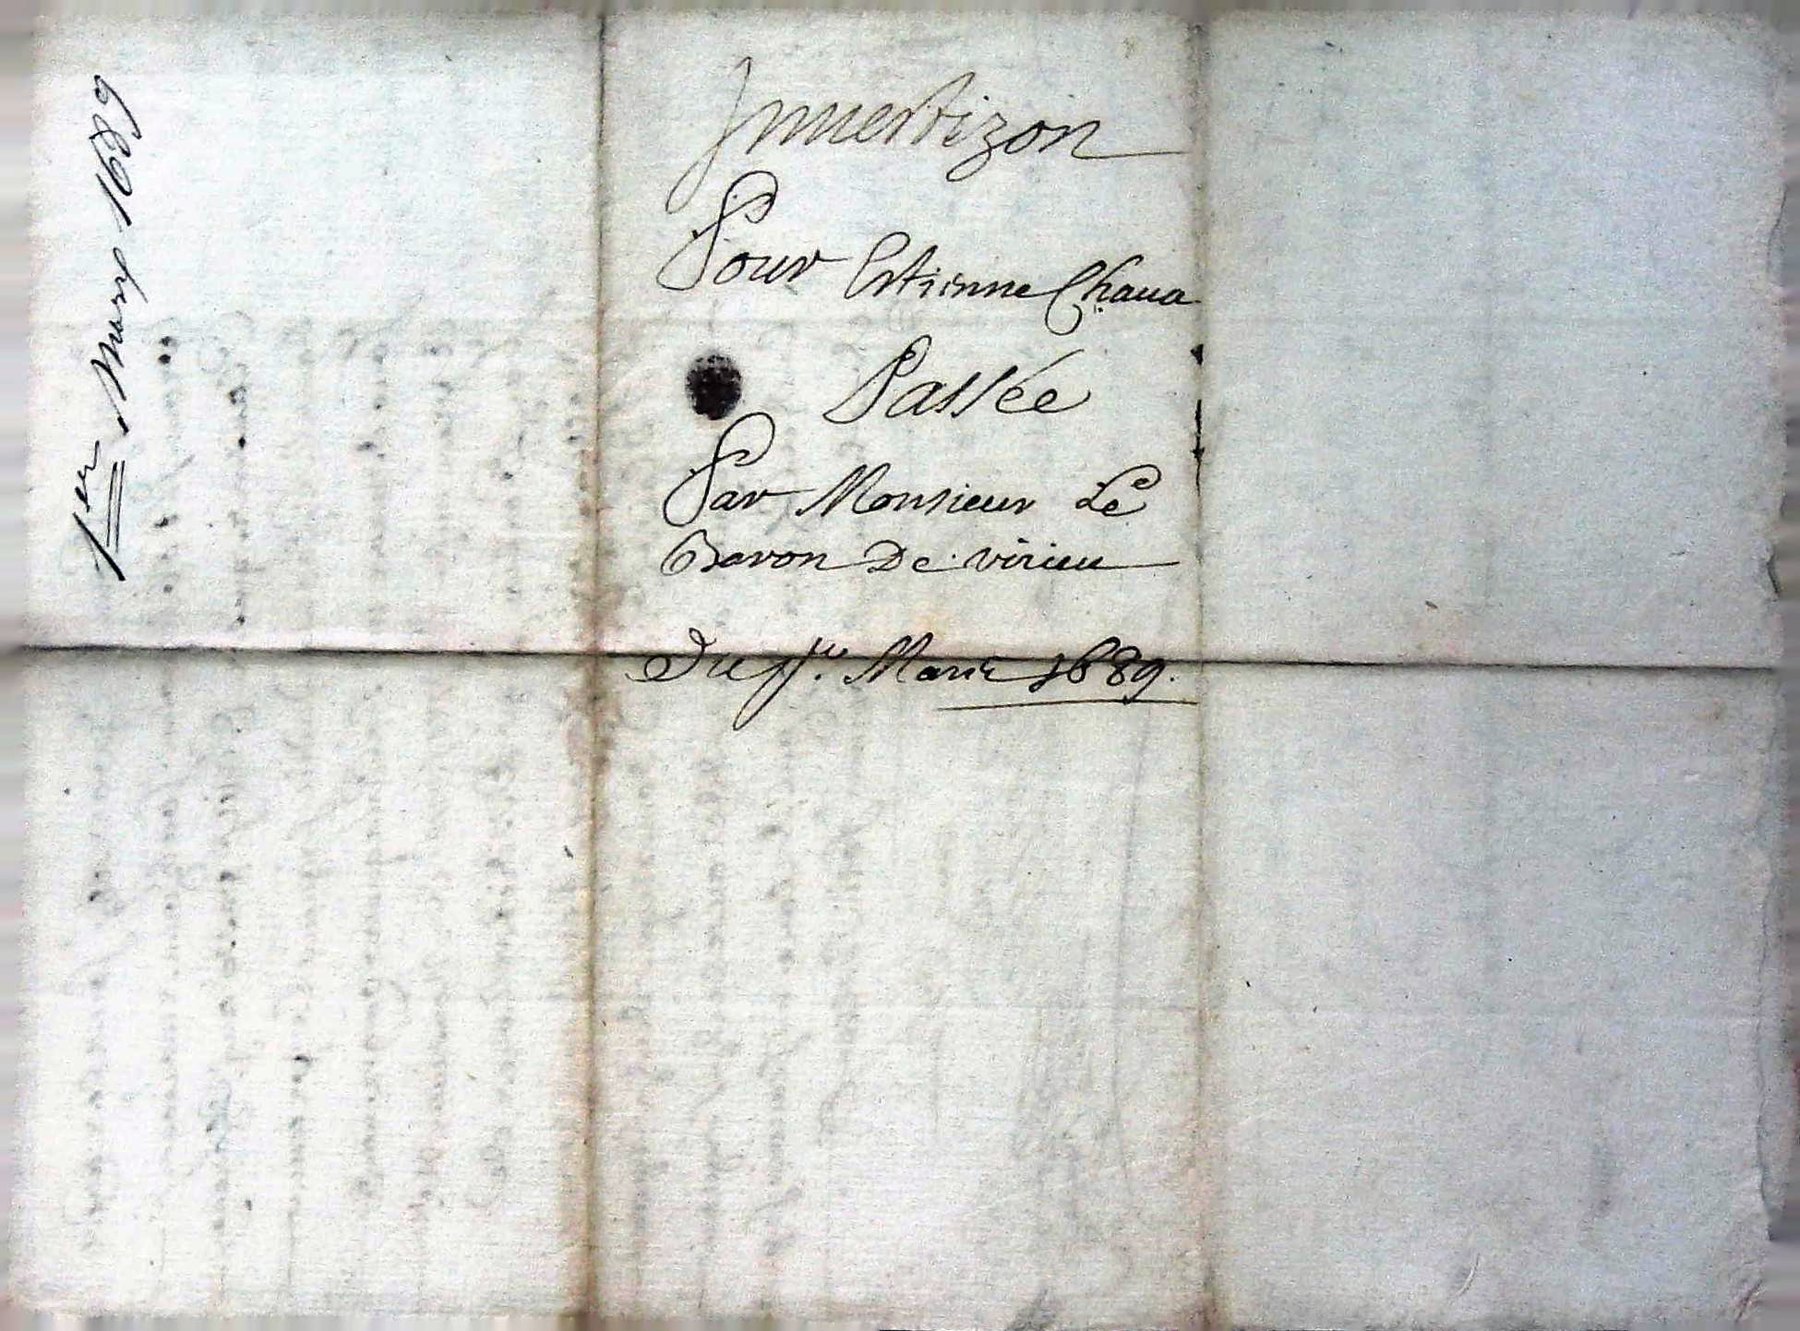 1er Mars 1689
Jnuestizon
Pour Estienne Chaua
Passée
Par Monsieur Le
Baron De virieu
Du pr. Mars 1689.